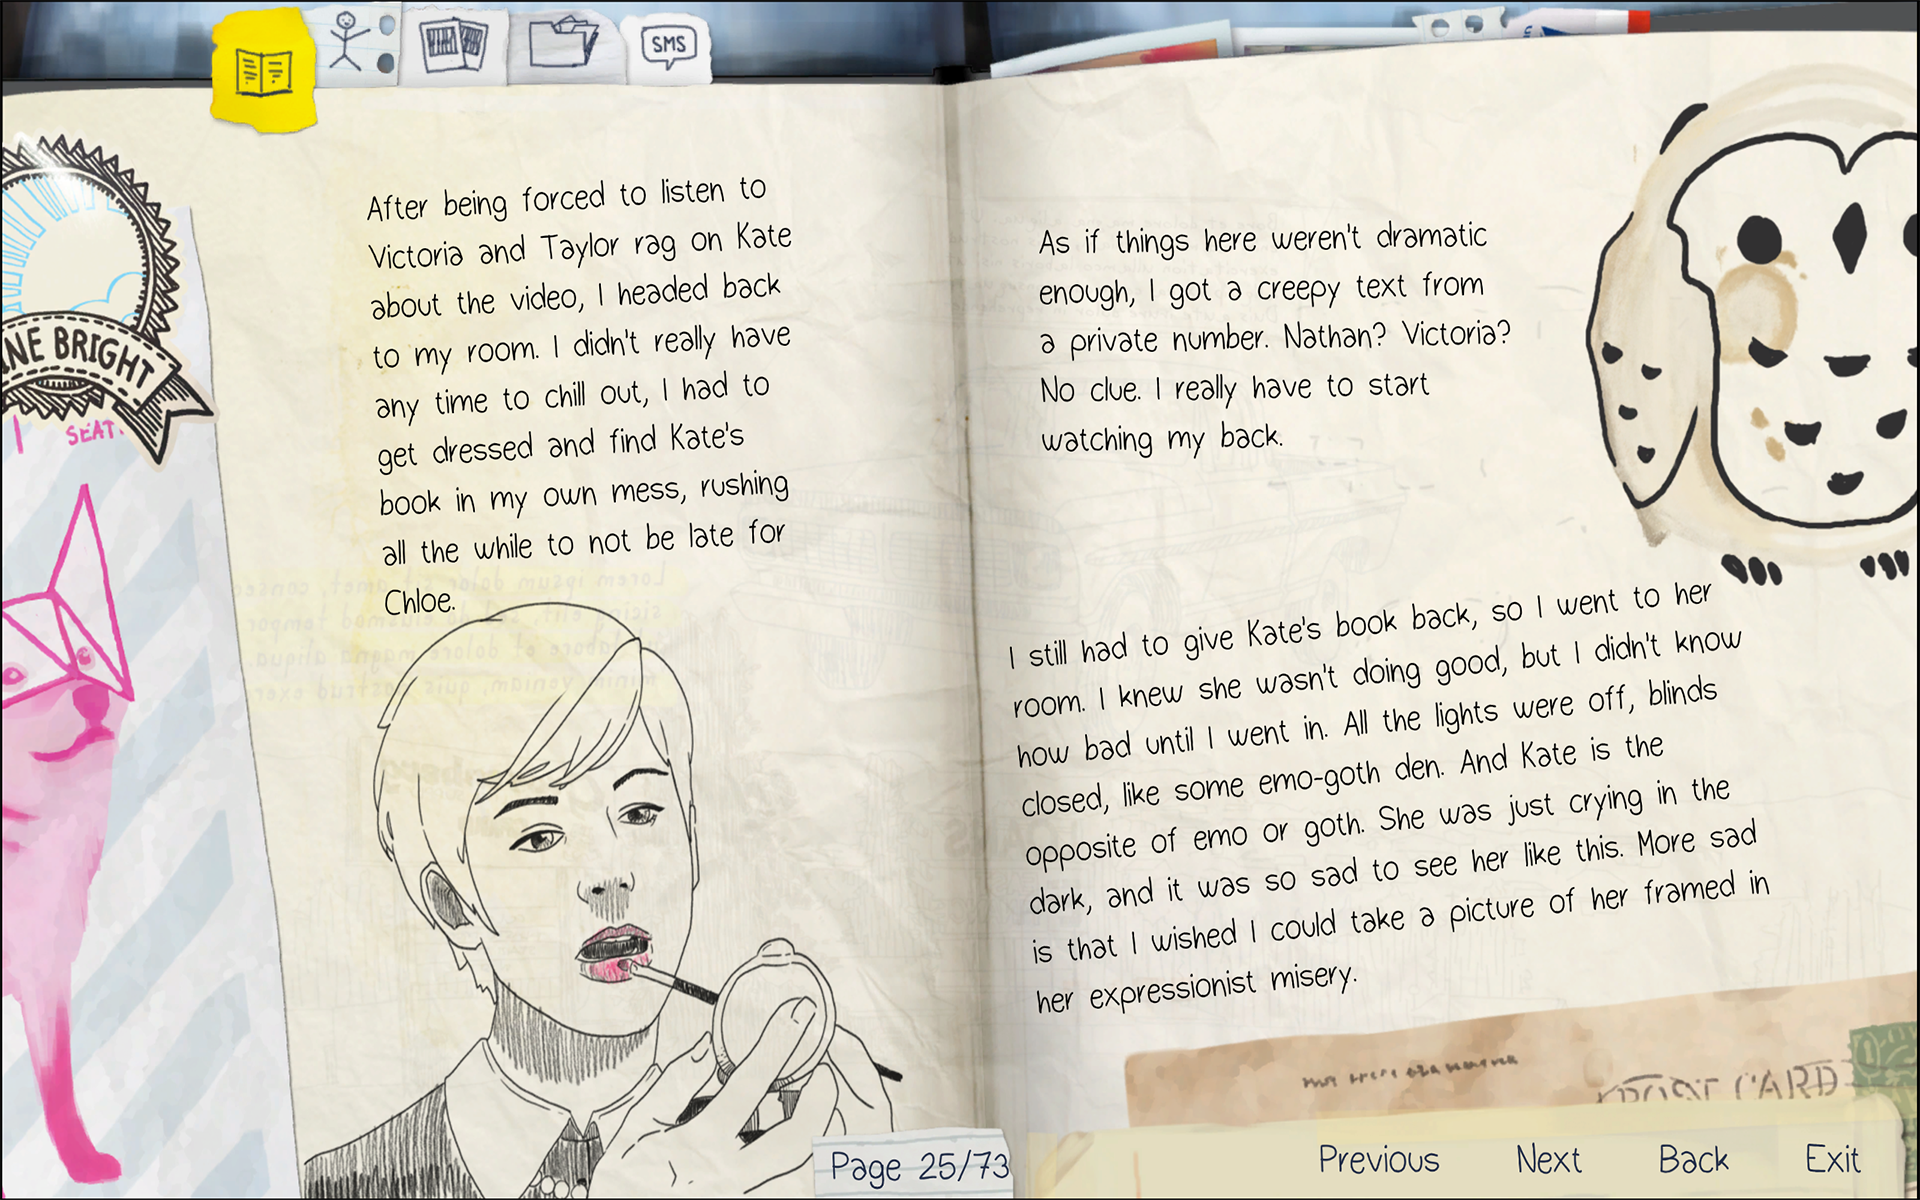 SMS
After being forced to listen to
Victoria and Taylor rag on Kate
about the video, I headed back
to my room. I didn't really have
any time to chill out, I had to
get dressed and find Kate's
book in my own mess, rushing
all the while to not be late for
Chloe.
INE BRIGHT
SEAT
As if things here weren't dramatic
enough, I got a creepy text from
a private number. Nathan? Victoria?
No clue. I really have to start
watching my back.
I still had to give Kate's book back, so I went to her
room. I knew she wasn't doing good, but I didn't know
how bad until I went in. All the lights were off, blinds
closed, like some emo-goth den. And Kate is the
opposite of emo or goth. She was just crying in the
dark, and it was so sad to see her like this. More sad
is that I wished I could take a picture of her framed in
her expressionist misery.
POST CARD
Page 25/73
Previous Next Back Exit